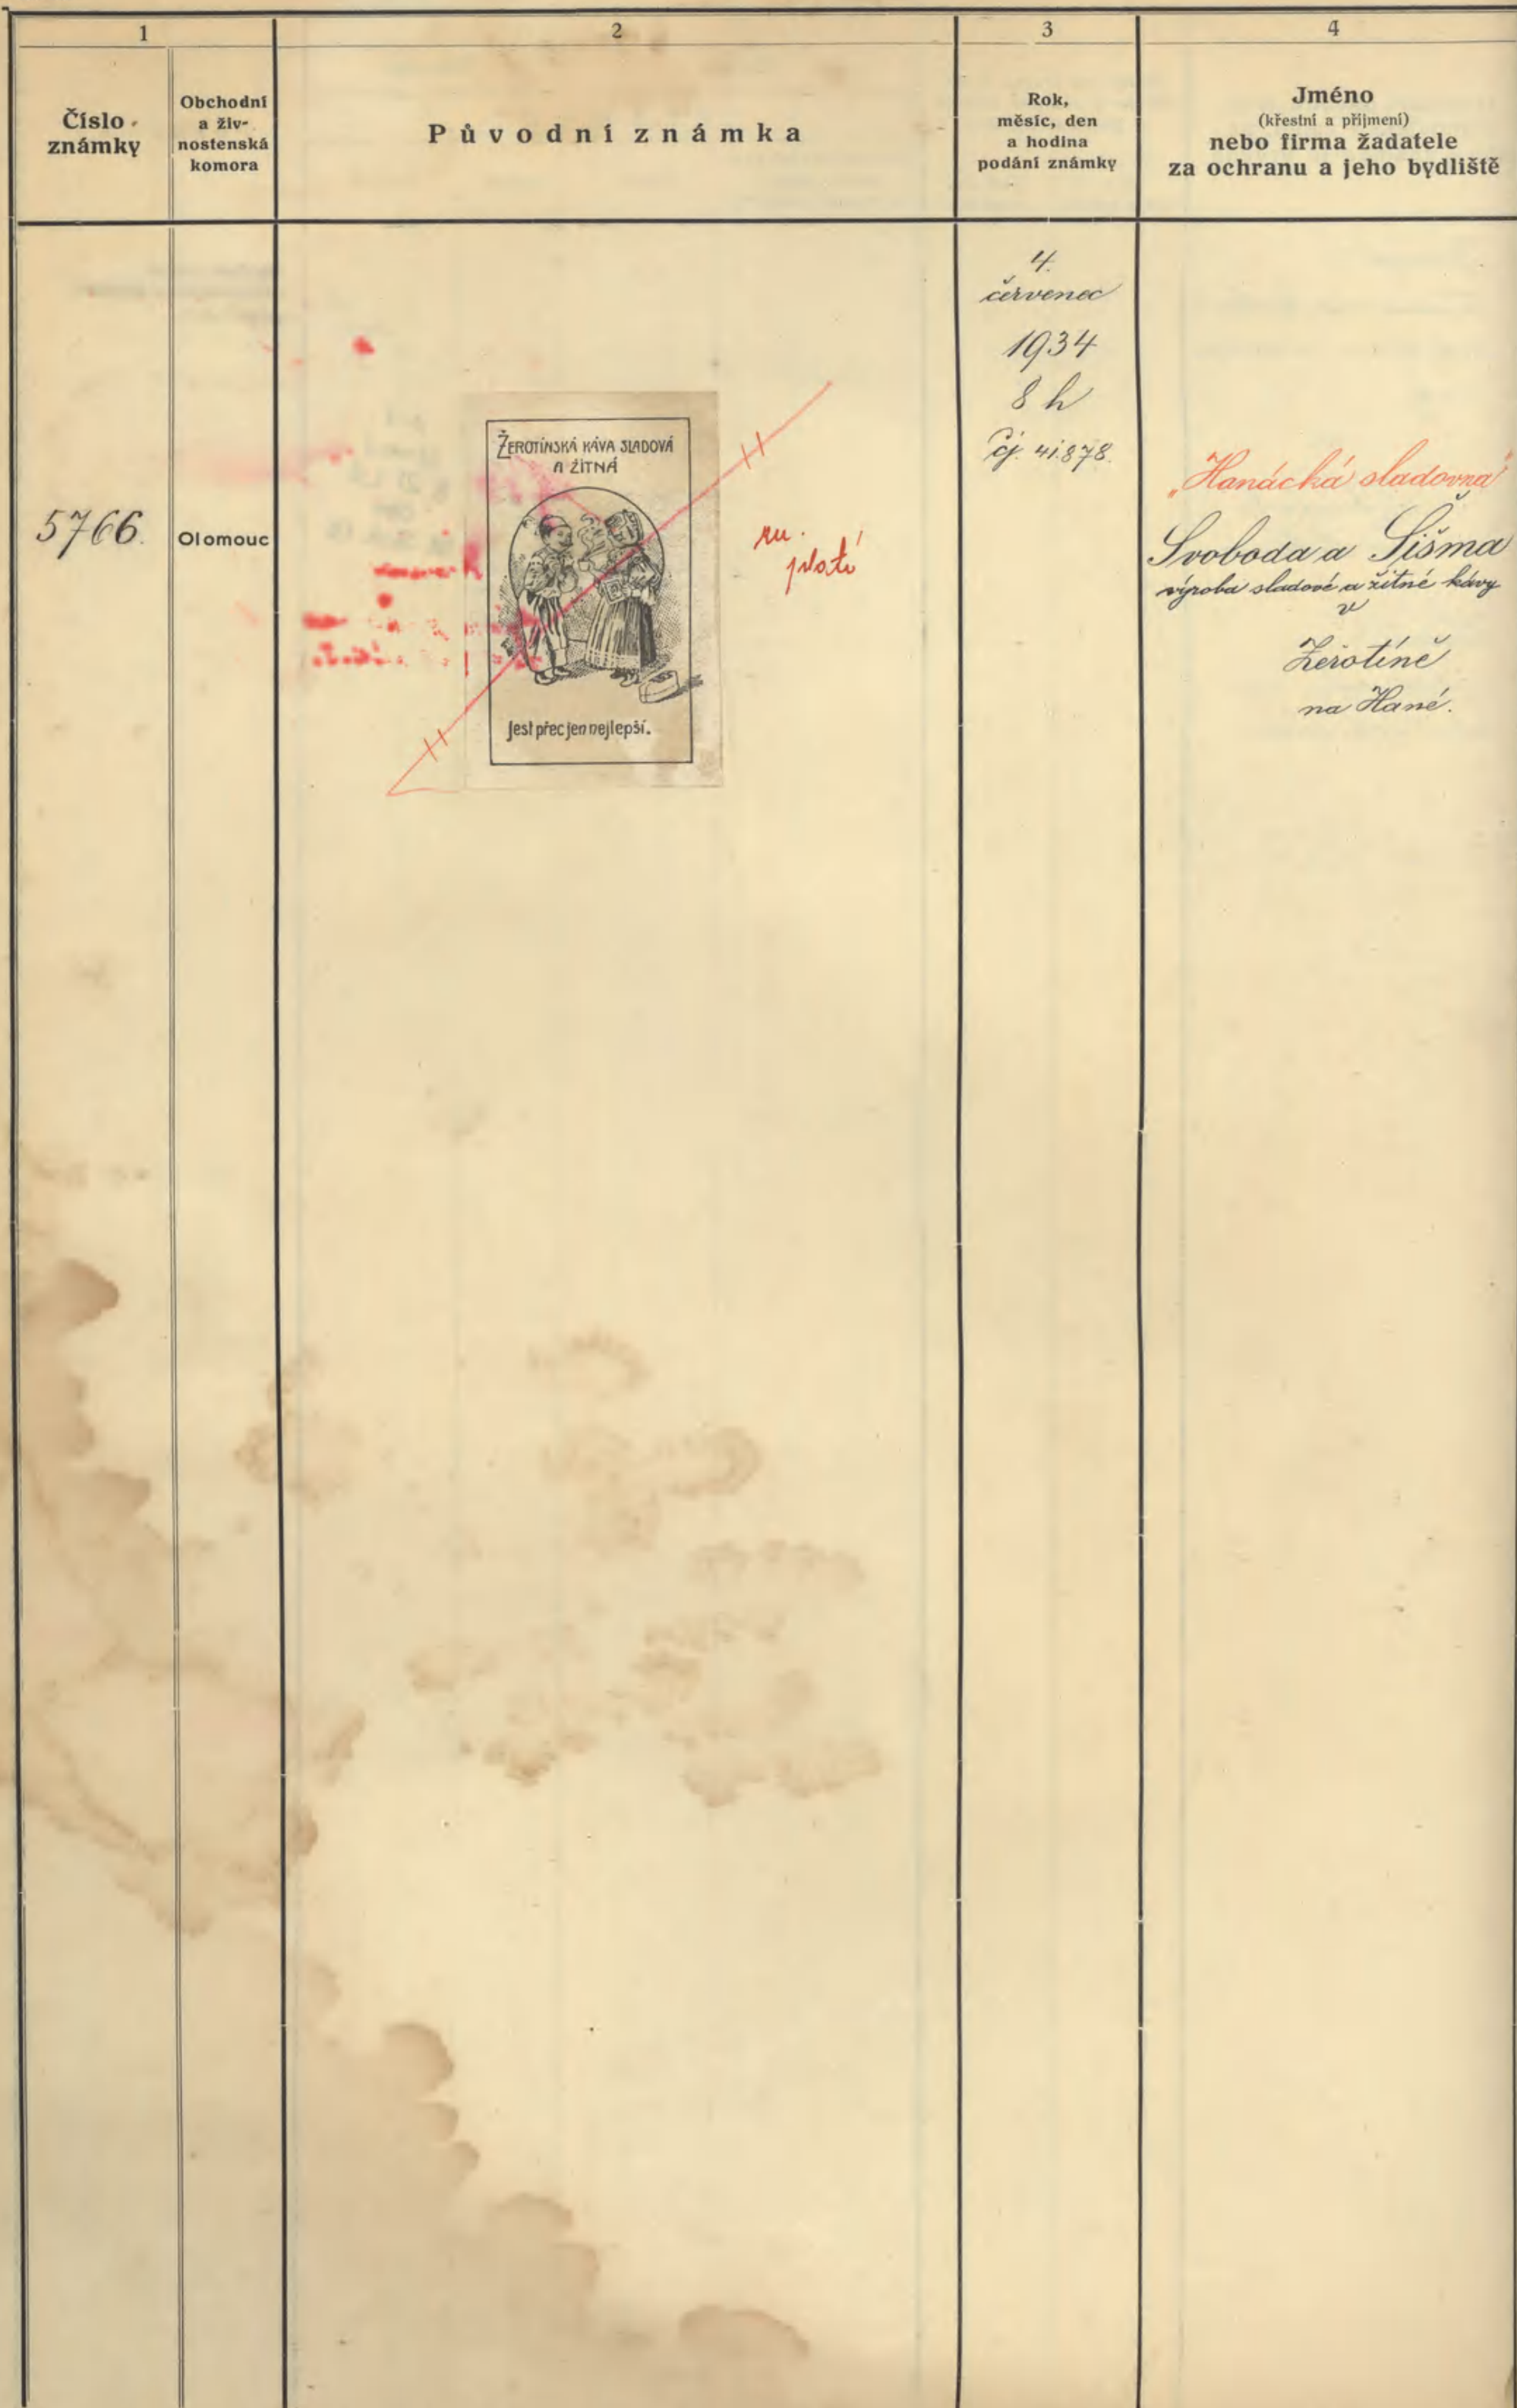 1
2
3
4
Číslo
známky
Obchodní
a živ-
nostenská
komora
Původní známka
Rok,
měsíc, den
a hodina
podání známky
Jméno
(křestní a příjmení)
nebo firma žadatele
za ochranu a jeho bydliště
5766.
Olomouc
ŽEROTÍNSKÁ KÁVA SLADOVÁ
A ŽITNÁ
Jest přec jen nejlepší.
platí
4.
červenec
1934
8 h
čj. 41.878.
"Hanácká sladovna"
Svoboda a Šišma
výroba sladové a žitné kávy
v
Žerotíně
na Hané.